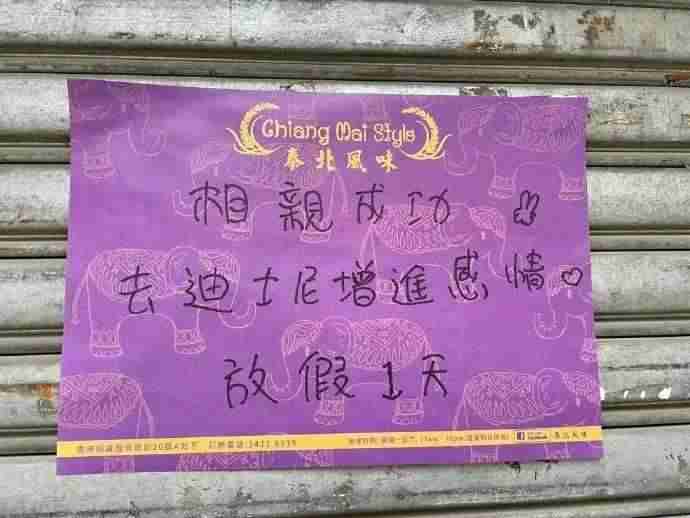 Chiang Mai Style
泰北風味
相親成功
去迪士尼增進感情♡
放假1天
facebook 泰北風味